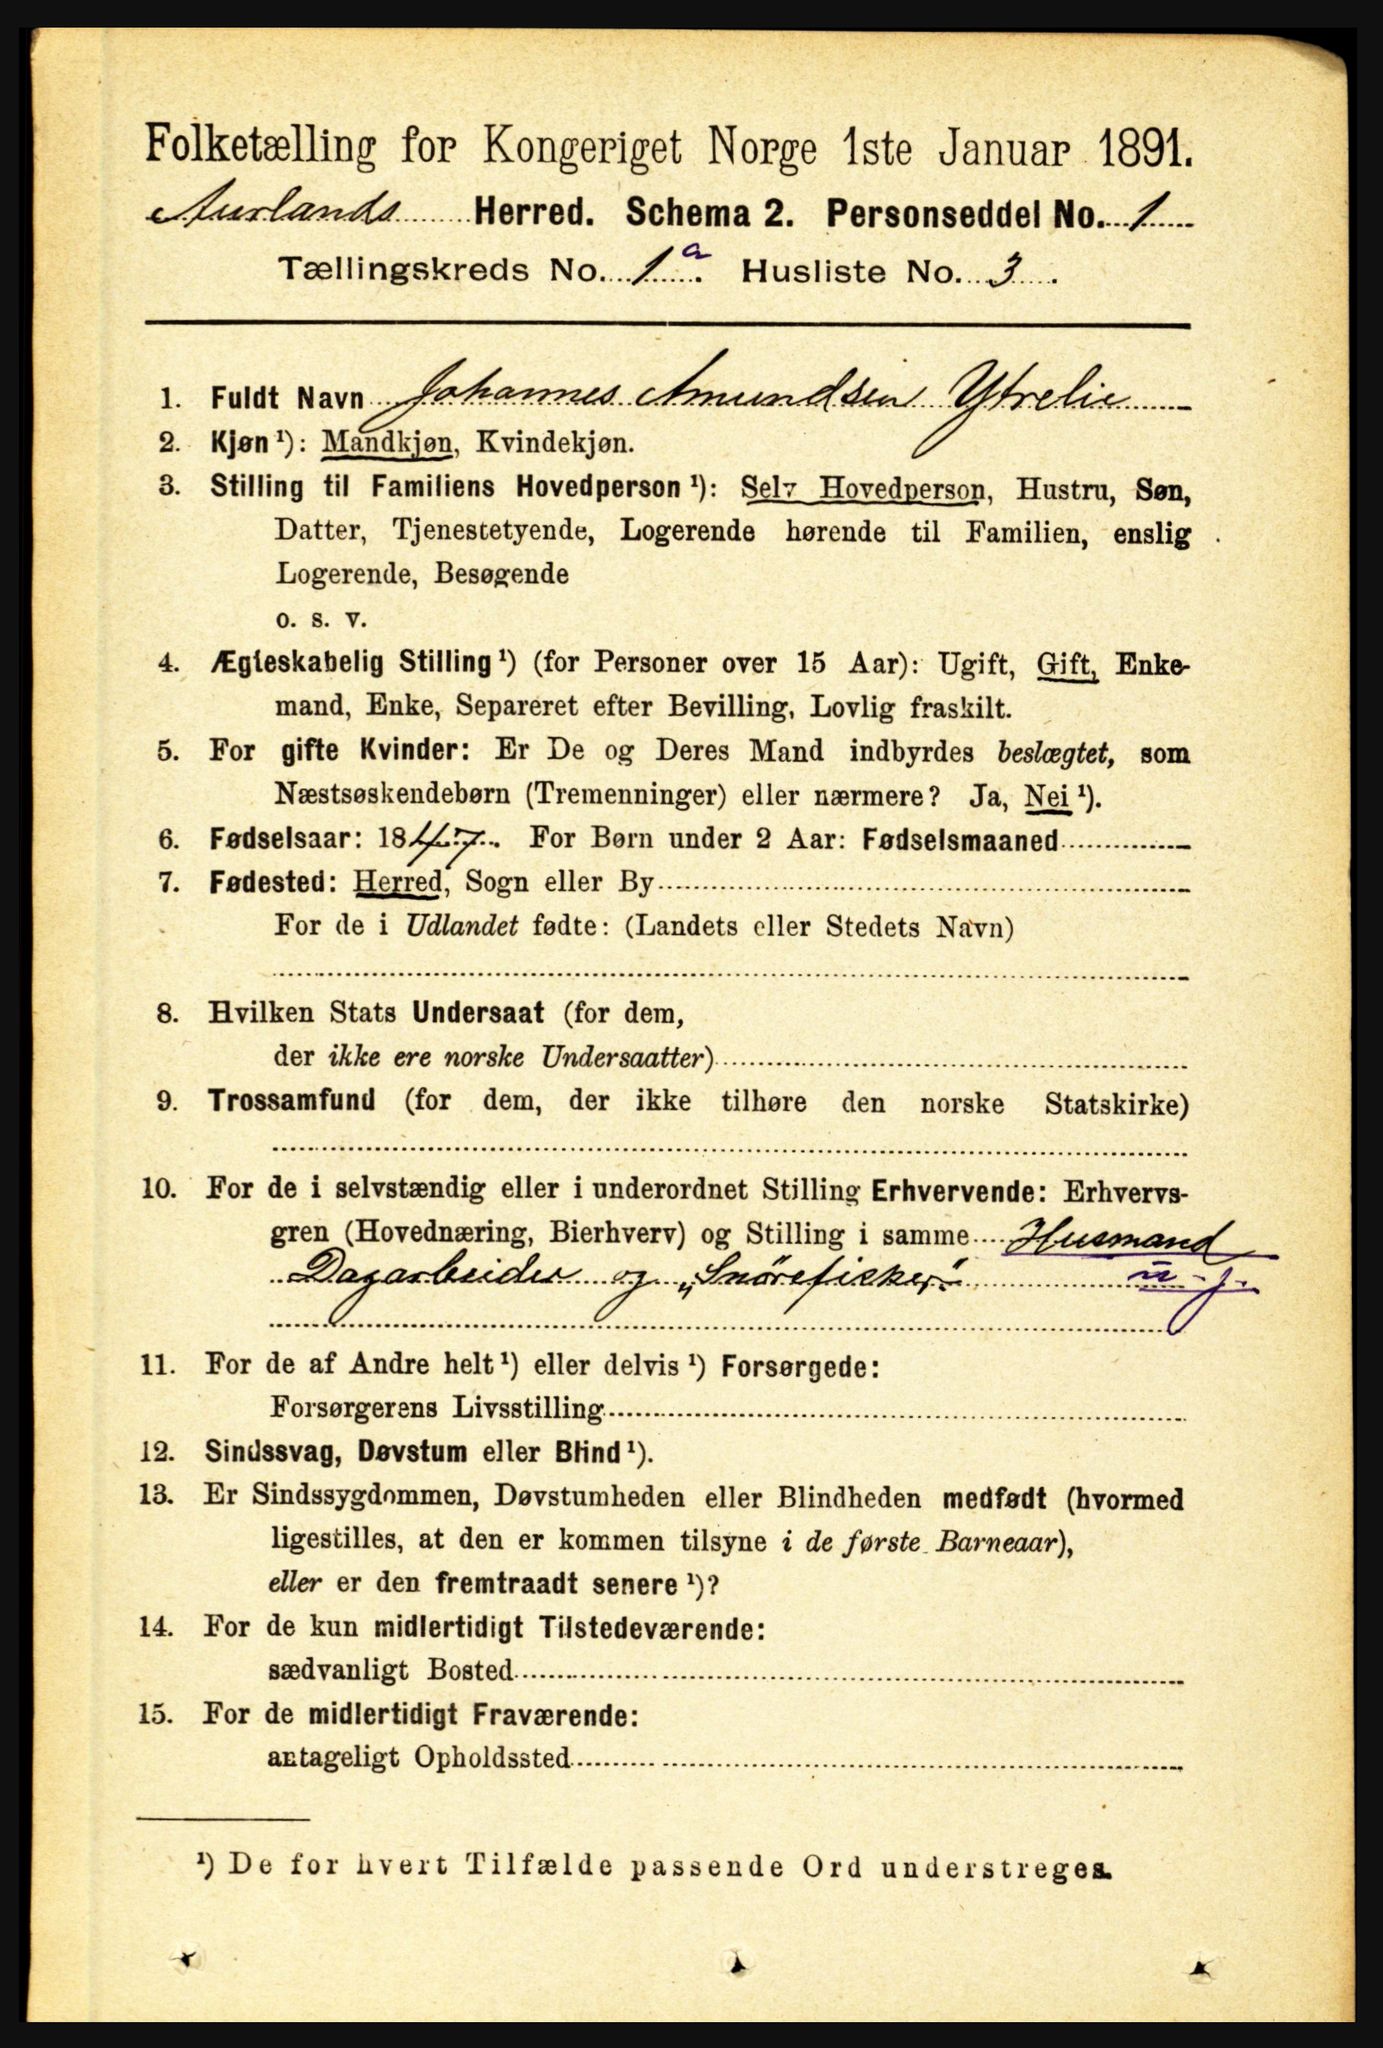 Folketælling for Kongeriget Norge 1ste Januar 1891.
Aurlands Herred. Schema 2. Personseddel No. 1
Tællingskreds No. 1a. Husliste No. 3.
1. Fuldt Navn Johannes Amundsen Ytrelie
2. Kjøn¹): Mandkjøn, Kvindekjøn.
3. Stilling til Familiens Hovedperson¹): Selv Hovedperson, Hustru, Søn,
Datter, Tjenestetyende, Logerende hørende til Familien, enslig
Logerende, Besøgende
o. s. v.
4. Ægteskabelig Stilling¹) (for Personer over 15 Aar): Ugift, Gift, Enke-
mand, Enke, Separeret efter Bevilling, Lovlig fraskilt.
5. For gifte Kvinder: Er De og Deres Mand indbyrdes beslægtet, som
Næstsøskendebørn (Tremenninger) eller nærmere? Ja, Nei¹).
6. Fødselsaar: 1847. For Børn under 2 Aar: Fødselsmaaned
7. Fødested: Herred, Sogn eller By
For de i Udlandet fødte: (Landets eller Stedets Navn)
8. Hvilken Stats Undersaat (for dem,
der ikke ere norske Undersaatter)
9. Trossamfund (for dem, der ikke tilhøre den norske Statskirke)
10. For de i selvstændig eller i underordnet Stilling Erhvervende: Erhvervs-
gren (Hovednæring, Bierhverv) og Stilling i samme Husmand
Dagarbeider og „Snörefisker“ u. j.
11. For de af Andre helt¹) eller delvis¹) Forsørgede:
Forsørgerens Livsstilling
12. Sindssvag, Døvstum eller Blind¹).
13. Er Sindssygdommen, Døvstumheden eller Blindheden medfødt (hvormed
ligestilles, at den er kommen tilsyne i de første Barneaar),
eller er den fremtraadt senere¹)?
14. For de kun midlertidigt Tilstedeværende:
sædvanligt Bosted
15. For de midlertidigt Fraværende:
antageligt Opholdssted
¹) De for hvert Tilfælde passende Ord understreges.